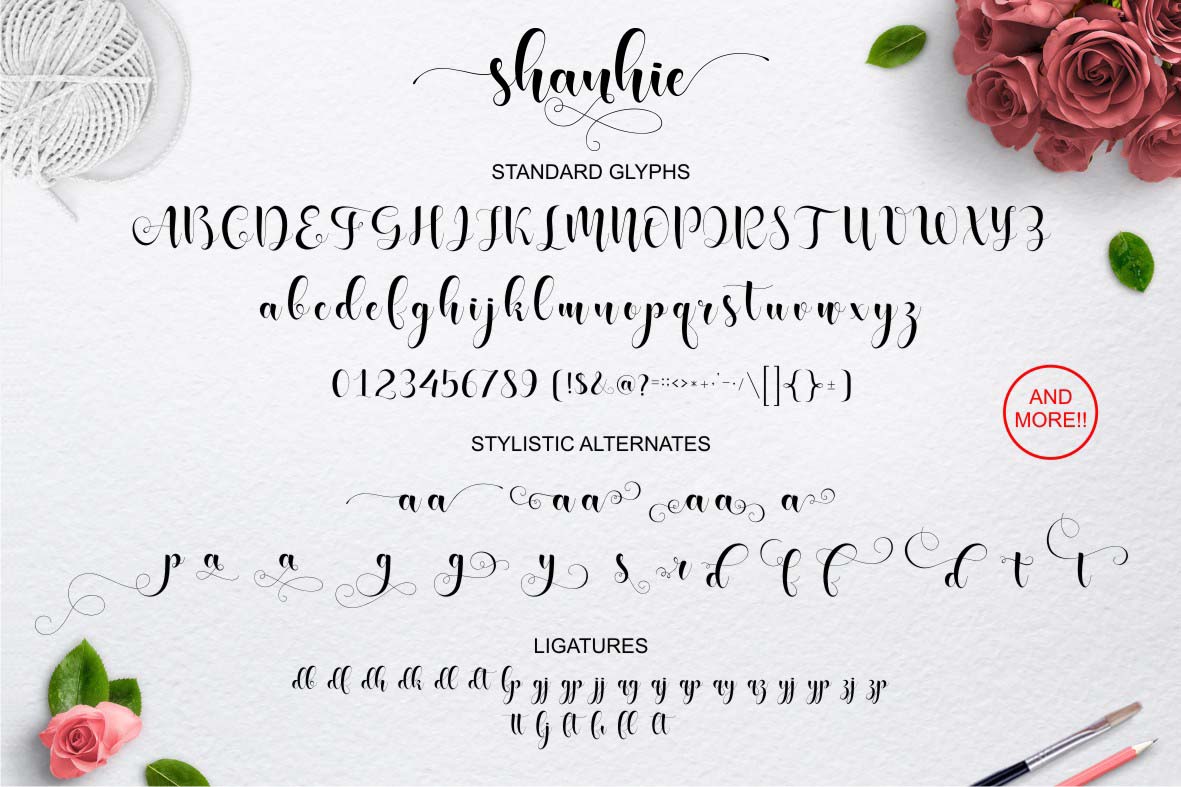 shanhie
STANDARD GLYPHS
ABCDEFGHIJKLMNOPQRSTUVWXYZ
abcdefghijklmnopqrstuvwxyz
0123456789 (!$&@?=::<>*+·'-·/\[]{}±)
AND
MORE!!
STYLISTIC ALTERNATES
a a a a a a a
p a a g g y s r d f f d t t
LIGATURES
db df dh dk dl dt fp gj gp jj qg qj qp qy qz yj yp zj zp
tt fj ft